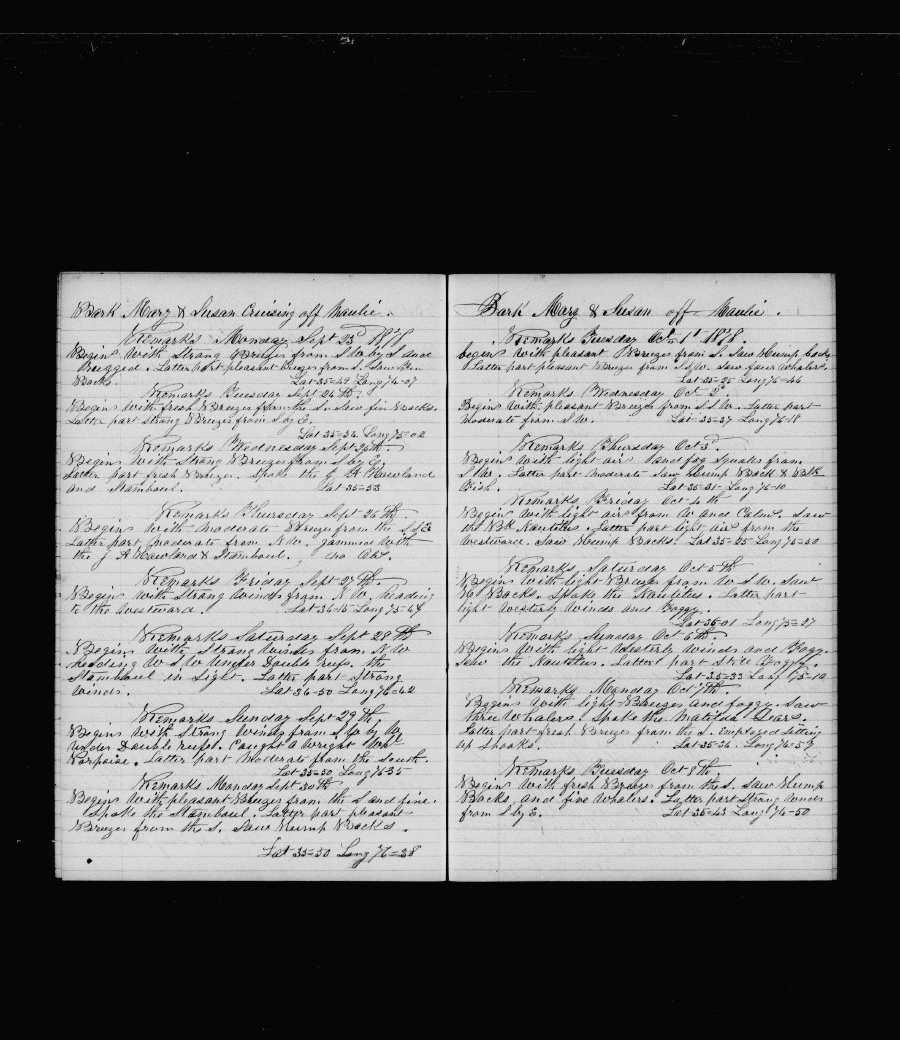 Bark Mary & Susan Cruising off Maulie.
Remarks Monday Sept 23d 1878
Begins with strong Breezes from S W by S and
Rugged. Latter part pleasant Breezes from S. Saw Fin
Backs. Lat 35=29 Long 74=07
Remarks Tuesday Sept 24th.
Begins with fresh Breezes from the S. Saw fin Backs.
Latter part strong Breezes from S by E.
Lat 35=34 Long 75=02
Remarks Wednesday Sept 25th.
Begins with Strong Breezes from S by E.
Latter part fresh Breezes. Spoke the J A Howland
and Stamboul. Lat 35=53
Remarks Thursday Sept 26th
Begins with moderate Breezes from the S S E
Latter part moderate from N. W. Gammed with
the J A Howland & Stamboul. no Obs.
Remarks Friday Sept 27th.
Begins with Strong Winds from N W. heading
to the westward. Lat 36=15 Long 75=44
Remarks Saturday Sept 28th
Begins with Strong Winds from N W
heading W S W under Double reefs. the
Stamboul in Sight. Latter part Strong
winds. Lat 36=50 Long 76=42
Remarks Sunday Sept 29th.
Begins with Strong Winds from S W by W
under Double reefs. Caught a Wright Whl
Porpoise. Latter part Moderate from the South.
Lat 35=30 Long 76=35
Remarks Monday Sept 30th
Begins with pleasant Breezes from the S and fine.
Spoke the Stamboul. Latter part pleasant
Breezes from the S. Saw Hump Backs.
Lat 35=50 Long 76=28
Bark Mary & Susan off Maulie.
Remarks Tuesday Oct 1st 1878.
begins with pleasant Breezes from S. Saw Hump backs
Latter part pleasant Breezes from S S W. Saw four whalers.
Lat 35=25 Long 76=46
Remarks Wednesday Oct 2d.
Begins with pleasant Breezes from S S W. Latter part
Moderate from S W. Lat 35=37 Long 76=11
Remarks Thursday Oct 3d.
Begins with light air and fog squalls from
S W. Latter part Moderate Saw Hump Back & Blk
Fish. Lat 35=31 Long 76=10
Remarks Friday Oct 4th
Begins with light airs from W and Calms. Saw
the Bk Nautilus. Latter part light airs from the
Westward. Saw Hump Backs. Lat 35=25 Long 75=50
Remarks Saturday Oct 5th
Begins with light Breezes from W S W. Saw
H Backs. Spoke the Nautilus. Latter part
light Westerly Winds and Foggy.
Lat 35=01 Long 75=37
Remarks Sunday Oct 6th.
Begins with light Westerly Winds and Foggy.
Saw the Nautilus. Latter part Still Foggy.
Lat 35=33 Long 75=10
Remarks Monday Oct 7th.
Begins with light Breezes and foggy. Saw
three Whalers. Spoke the Matilda Sears.
Latter part fresh Breezes from the S. Employed Setting
up Shooks. Lat 35=34 Long 74=57
Remarks Tuesday Oct 8th
Begins with fresh Breezes from the S. Saw Hump
Backs and five Whalers. Latter part Strong Winds
from S by E. Lat 35=43 Long 74=50